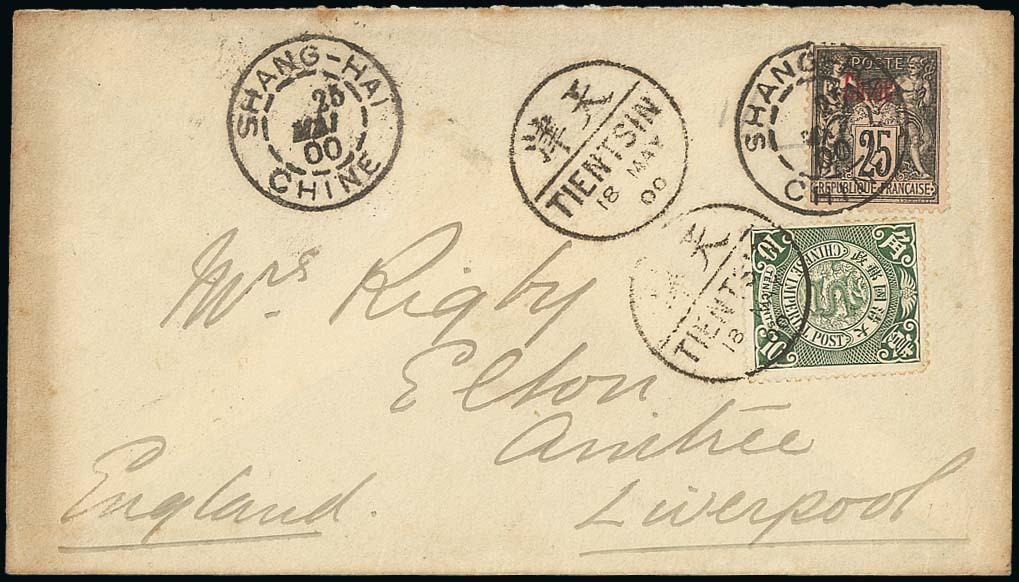 SHANG-HAI
25
MAI
00
CHINE
天津
TIENTSIN
18 MAY
00
SHANG
00
CHI
POSTE
Chine
25
REPUBLIQUE FRANÇAISE
天
TIENTSIN
18
大清國郵政
CHINESE IMPERIAL POST
10
10
Mrs Rigby
Elton
Aintree
Liverpool
England.